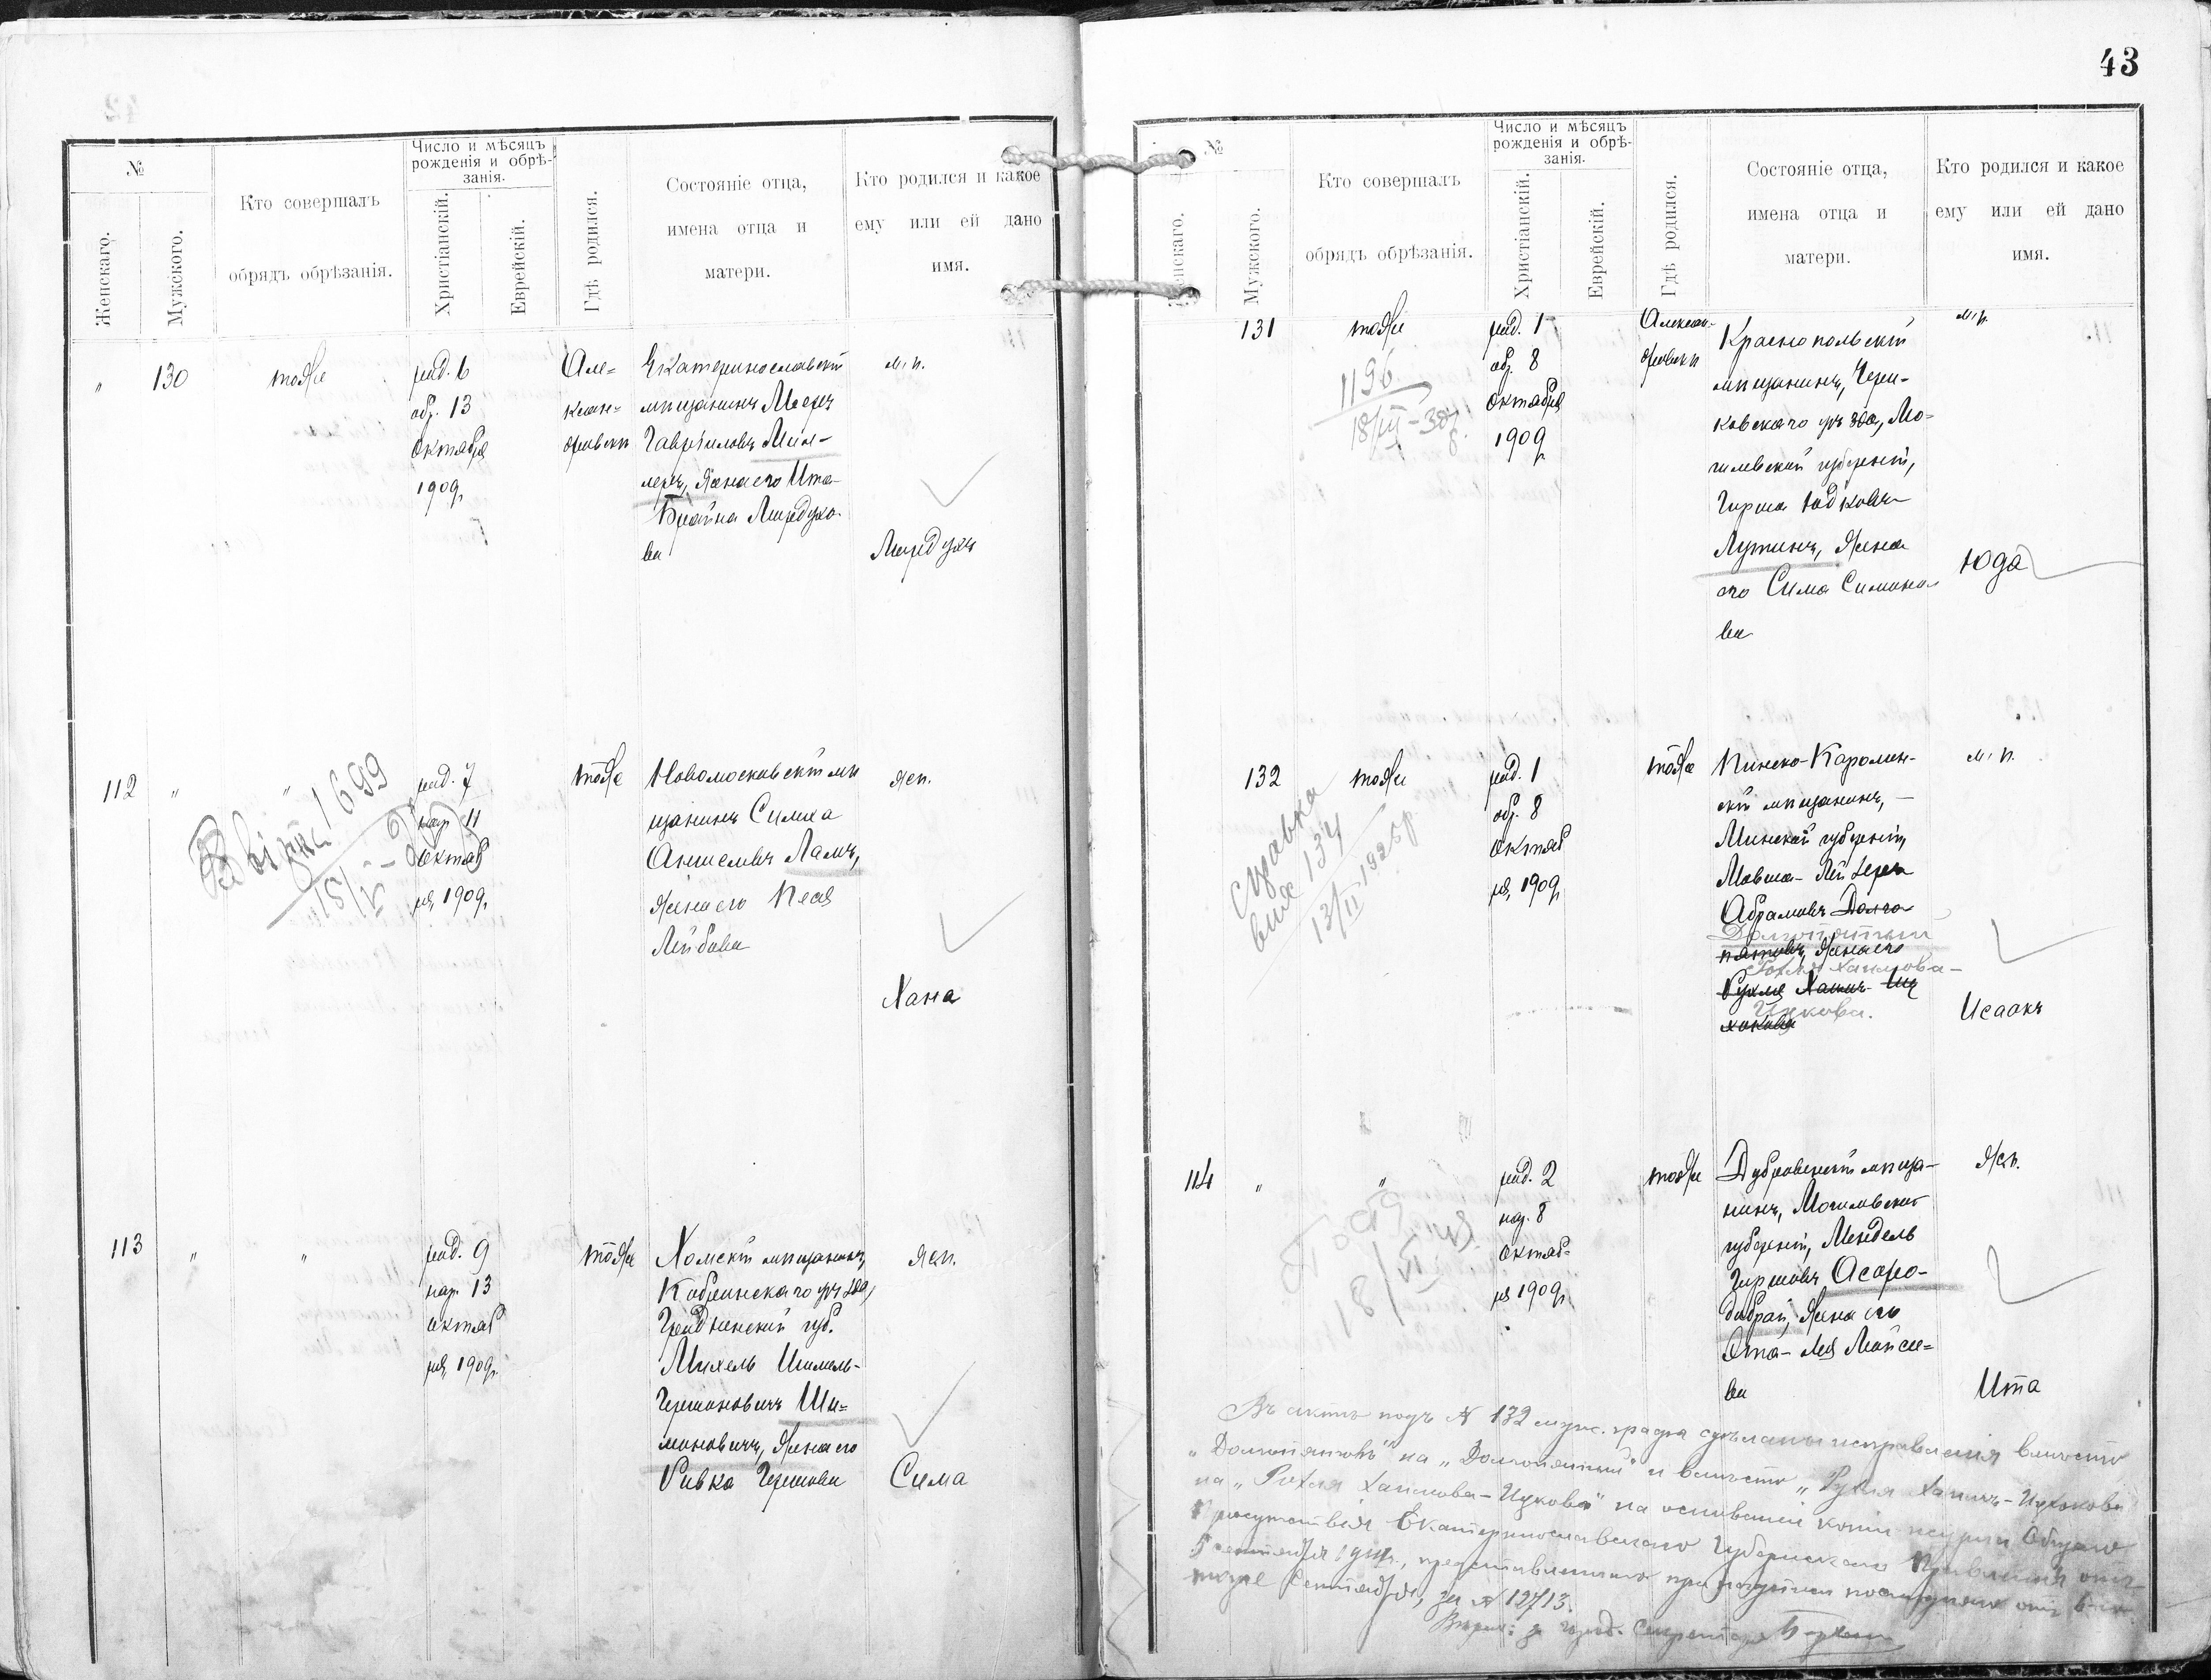 №
Женскаго.
Мужского.
Кто совершалъ
обрядъ обрѣзанія.
Число и мѣсяцъ
рожденія и обрѣ-
занія.
Христіанскій.
Еврейскій.
Гдѣ родился.
Состояніе отца,
имена отца и
матери.
Кто родился и какое
ему или ей дано
имя.
" 130 тоже
род. 6
обр. 13
октября
1909 г.
Але=
ксан=
дровскъ
Екатеринославскій
мѣщанинъ Мееръ
Гавриловъ Мил-
леръ, жена его Ита-
Брайна Мордухо-
ва
м. п.
Мордухъ
112 " "
1699
род. 7
нар. 11
октяб
ря 1909 г.
тоже
Новомосковскій мѣ
щанинъ Симха
Аншелевъ Ламъ,
жена его Песя
Лейбова
жен.
Хана
113 " "
род. 9
нар. 13
октяб
ря 1909 г.
тоже
Хомскій мѣщанинъ,
Кобринскаго уѣзда,
Гродненской губ.
Михель Шмуль-
Гершоновичъ Ши=
моновичъ, жена его
Ривка Гершова
жен.
Сима
43
№
Женскаго.
Мужского.
Кто совершалъ
обрядъ обрѣзанія.
Число и мѣсяцъ
рожденія и обрѣ-
занія.
Христіанскій.
Еврейскій.
Гдѣ родился.
Состояніе отца,
имена отца и
матери.
Кто родился и какое
ему или ей дано
имя.
131 тоже
1196
18/III-38г.
род. 1
обр. 8
октября
1909 г.
Алексан-
дровскъ
Краснопольскій
мѣщанинъ, Чери-
ковскаго уѣзда, Мо=
гилевской губерніи,
Гирша Юдковъ
Лутинъ, жена
его Сима Симоно
ва
м. п.
Юда
132 тоже
справка
134
13/II 1925 р.
род. 1
обр. 8
октяб
ря 1909 г.
тоже
Пинско-Каролин-
скій мѣщанинъ, -
Минской губерніи,
Мовша-Лейзеръ
Абрамовъ Долго
Долгопятый
пятовъ, жена его
Рохля Хаимова-
Рухля Хаимъ-Иц
Ицкова.
хокова
м. п.
Исаакъ
114 " "
18/VI
род. 2
нар. 8
октяб=
ря 1909 г.
тоже
Дубровенскій мѣща-
нинъ, Могилевской
губерніи, Мендель
Гиршовъ
жена его
жен.
Ита
ва
Въ актѣ подъ № 132 муж. графа сдѣланы исправленія вмѣсто
"Долгопятовъ" на "Долгопятый" и вмѣсто "Рухля Хаимъ-Ицхокова"
на "Рохля Хаимова-Ицкова" на основаніи копіи журнала Общаго
Присутствія Екатеринославскаго Губернскаго Правленія отъ
5 сентября представленнаго при
того же Сентября, за № 12713.
Секретаря